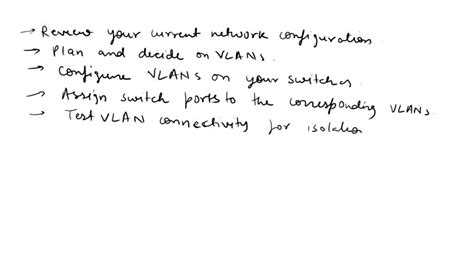 → Review your current network configuration.
→ Plan and decide on VLANs.
→ Configure VLANs on your switches
→ Assign switch ports to the corresponding VLANs.
→ Test VLAN connectivity for isolation